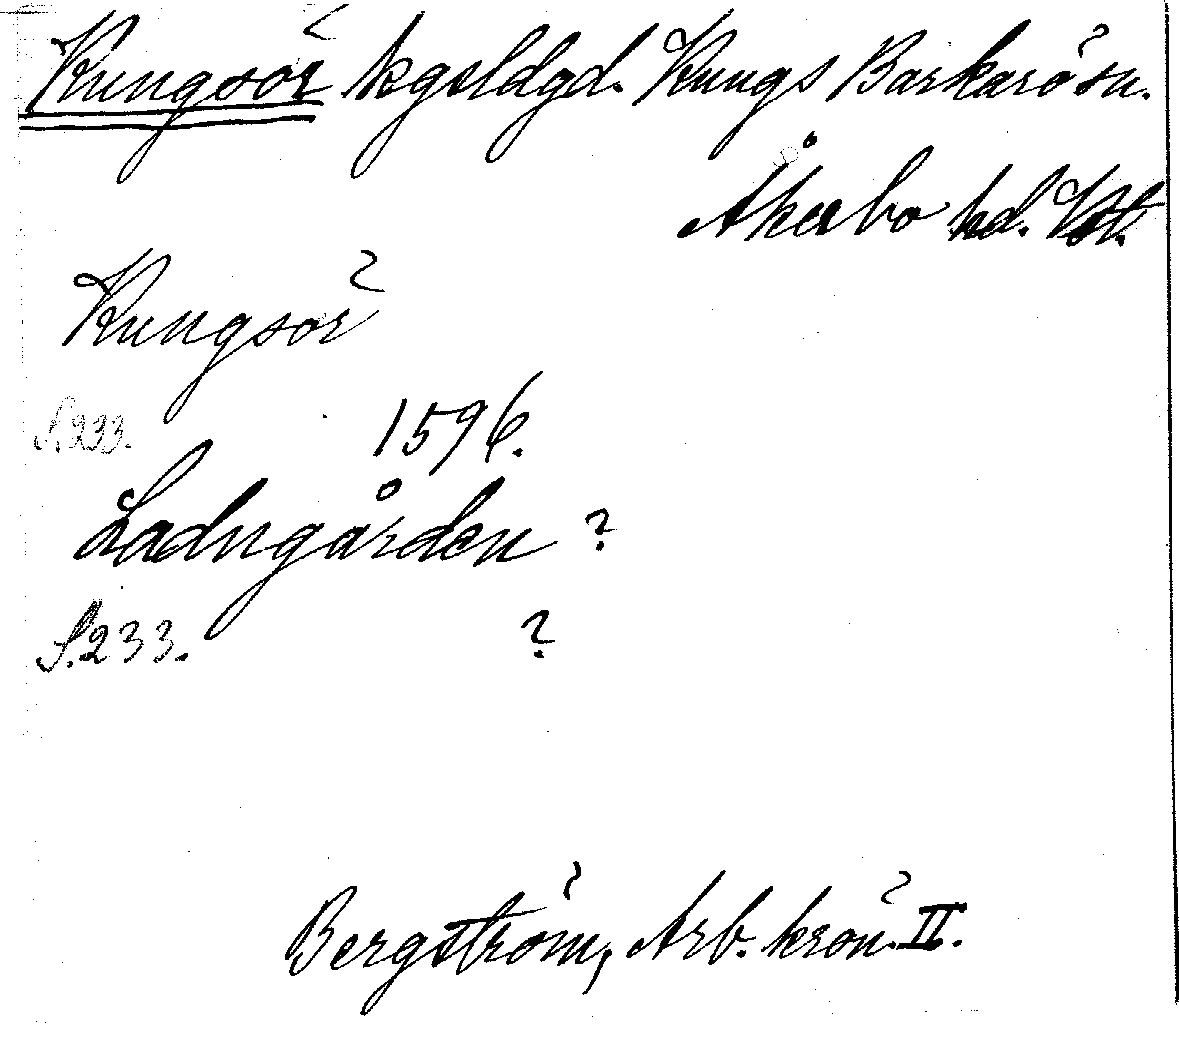 Kungsör kgsldgd. Kungs Barkarö sn.
Åkerbo hd. Vstm.
Kungsör
S. 233. 1596.
Ladugården?
S. 233. ?
Bergström, Arb. krön. II.